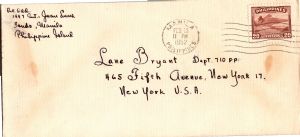 1447 Int. Juan Luna
Tondo, Manila
Philippine Island
MANILA
FEB 13
11 PM
1952
PHILIPPINES
PHILIPPINES
20 20
Lane Bryant Dept. 710 PP.
465 Fifth Avenue, New York 17.
New York U.S.A.